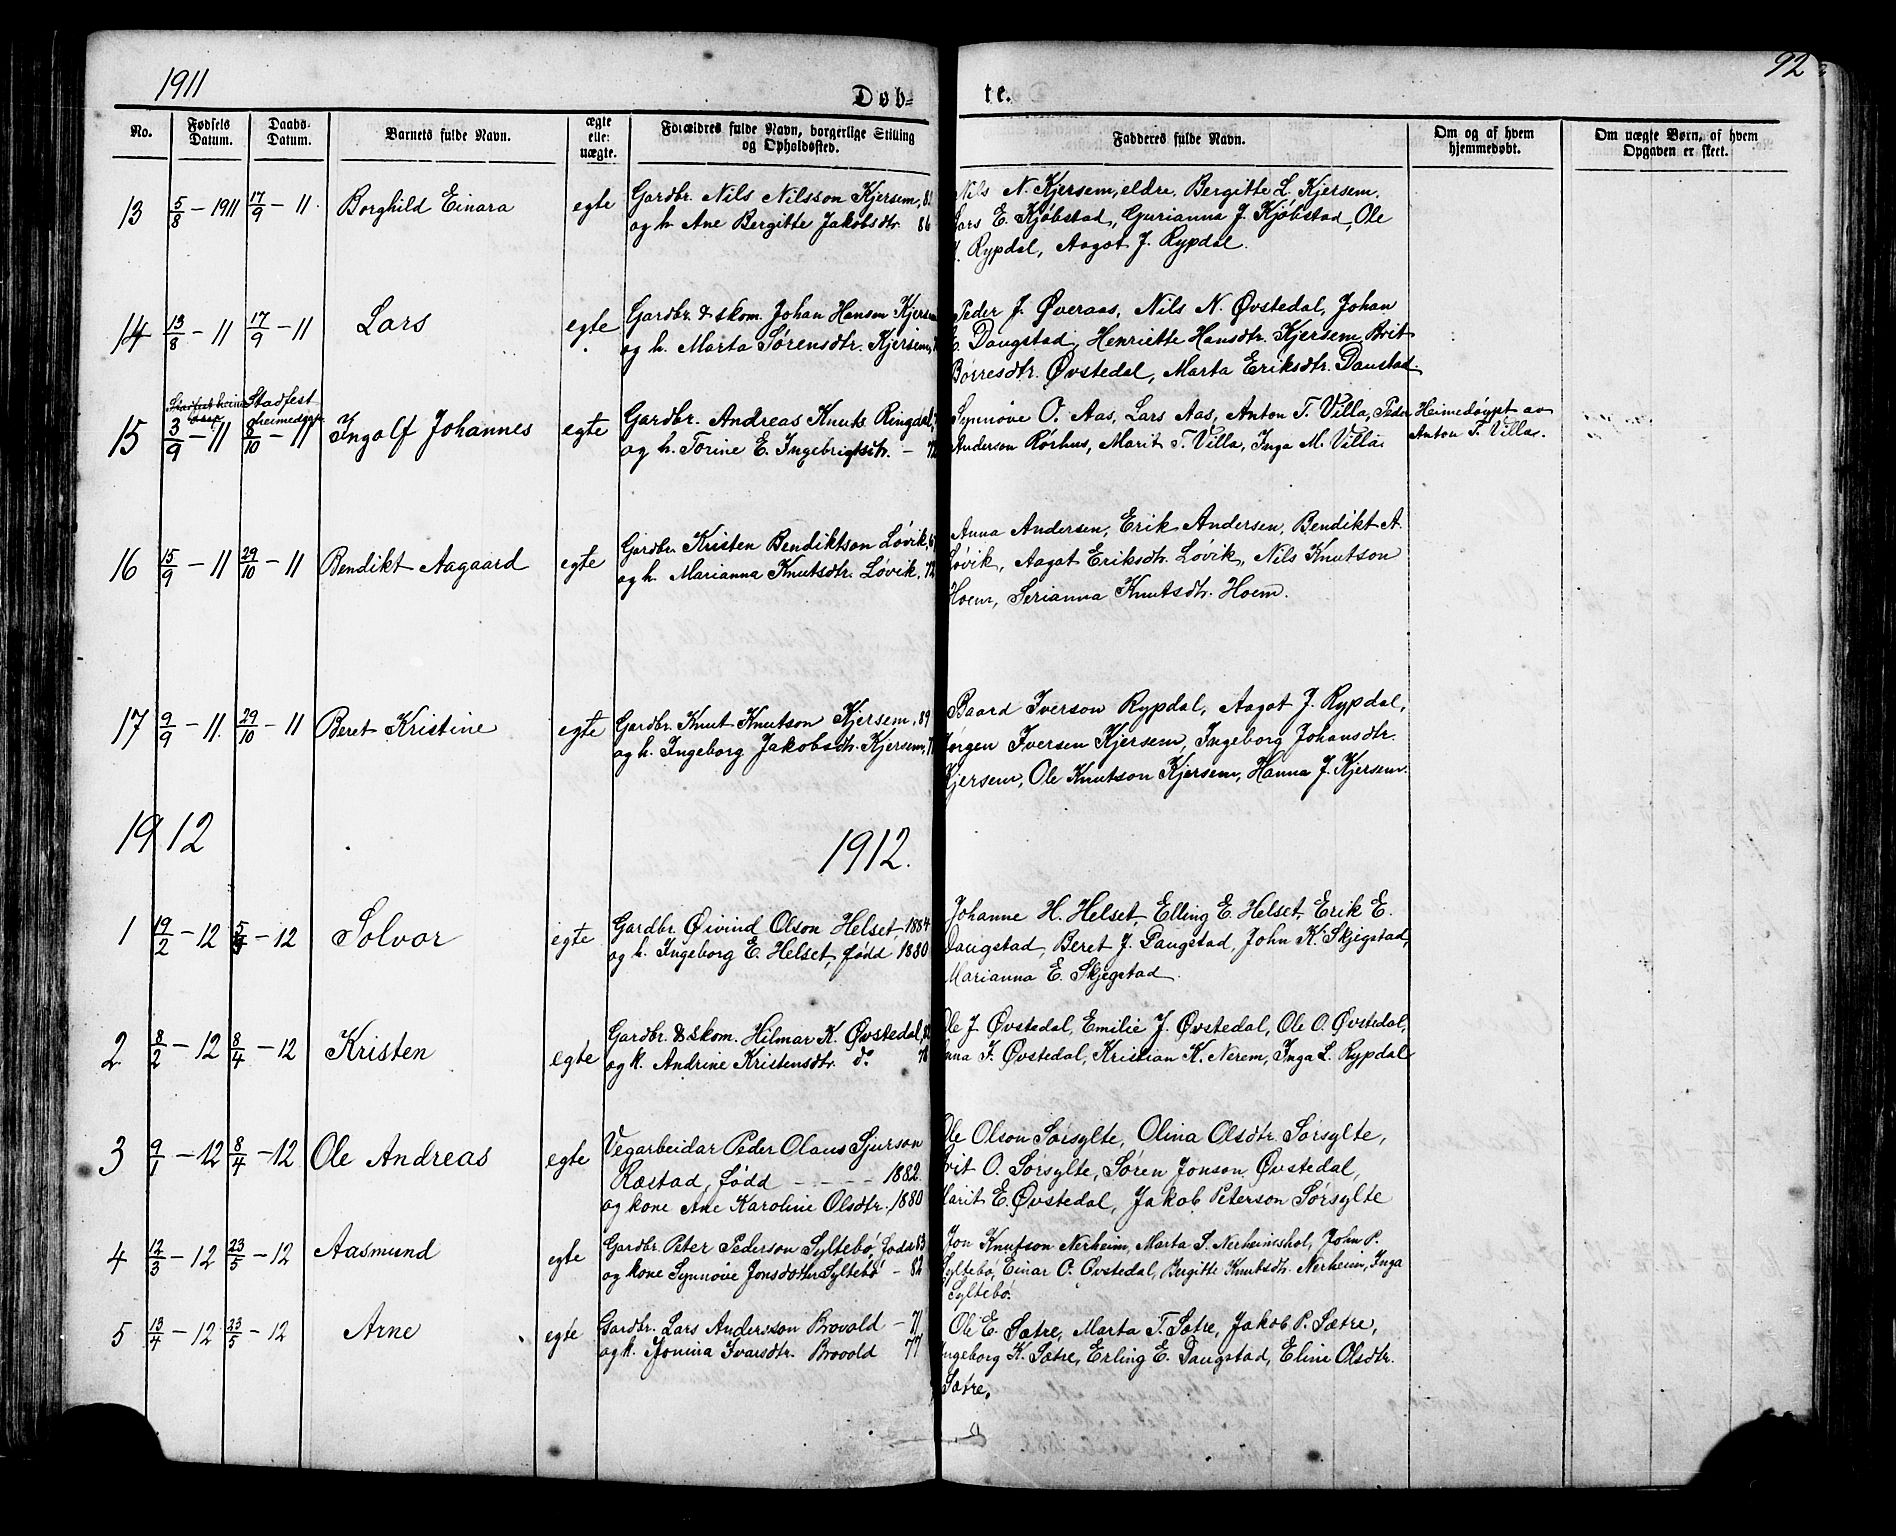 1911
92
Døb-
te.
No.
Fødsels Datum.
Daabs- Datum.
Barnets fulde Navn.
ægte eller uægte.
Forældres fulde Navn, borgerlige Stilling og Opholdssted.
Fadderes fulde Navn.
Om og af hvem hjemmedøbt.
Om uægte Børn, af hvem Opgaven er skeet.
13 5/8 - 1911 17/9 - 11. Borghild Einara egte
Gardbr. Nils Nilsson Kjersem, 82
og h. Ane Bergitte Jakobsdtr. 86
Nils N. Kjersem, eldre, Bergitte L. Kjersem,
Lars E. Kjøbstad, Gurianna J. Kjøbstad, Ole
Rypdal, Aagot J. Rypdal.
14 13/8 - 11 17/9 - 11 Lars egte
Gardbr. & skom. Johan Hansen Kjersem
og h. Marta Sørensdtr. Kjersem,
Peder J. Øveraas, Nils N. Øvstedal, Johan
E. Daugstad, Henriette Hansdtr. Kjersem Brit
Børresdtr. Øvstedal, Marta Eriksdtr. Daustad.
Stadfest heimedøypt
15 3/9 - 11 8/10 - 11 Ingolf Johannes egte
Gardbr. Andreas Knuts. Ringdal,
og h. Torine E. Ingebrigtsdtr. - 72
Synnøve O. Aas, Lars Aas, Anton T. Villa, Peder
Anderson Rørhus, Marit T. Villa, Inga M. Villa.
Heimedøypt av
Anton T. Villa.
16 15/9 - 11 29/10 - 11 Bendikt Aagaard egte
Gardbr. Kristen Bendiktson Løvik,
og h. Marianna Knutsdtr. Løvik, 72
Anna Andersen, Erik Andersen, Bendikt A.
Løvik, Aagot Eriksdtr. Løvik, Nils Knutson
Hoem, Serianna Knutsdtr. Hoem.
17 9/9 - 11. 29/10 - 11 Beret Kristine egte
Gardbr. Knut Knutson Kjersem, 89
og h. Ingeborg Jakobsdtr. Kjersem,
Baard Iverson Rypdal, Aagot J. Rypdal,
Jørgen Iversen Kjersem, Ingeborg Johansdtr.
Kjersem, Ole Knutson Kjersem, Hanna J. Kjersem.
1912
1912.
1 19/2 - 12 5/4 - 12 Solvor egte
Gardbr Øivind Olson Helset, 1884
og h. Ingeborg E. Helset, fødd 1880
Johanne H. Helset, Elling E. Helset, Erik E.
Daugstad, Beret J. Daugstad, John K. Skjegstad,
Marianna E. Skjegstad.
2 8/2 - 12 8/4 - 12 Kristen egte
Gardbr. & skom. Hilmar K. Øvstedal, 82
og k. Andrine Kristensdtr. do 78
Ole J. Øvstedal, Emilie J. Øvstedal, Ole O. Øvstedal,
Anna I. Øvstedal, Kristian K. Nerem, Inga L. Rypdal
3 9/1 - 12 8/4 - 12 Ole Andreas egte
Vegarbeidar Peder Olaus Sjurson
Ræstad, fødd - - - - 1882.
og kone Ane Karoline Olsdtr., 1880
Ole Olson Sørsylte, Olina Olsdtr. Sørsylte,
Brit O. Sørsylte, Søren Jonson Øvstedal,
Marit E. Øvstedal, Jakob Peterson Sørsylte
4 12/3 - 12 23/5 - 12 Aasmund egte
Gardbr. Peter Pederson Syltebø, fødd 83
og kone Synnøve Jonsdotter Syltebø - 82
Jon Knutson Nerheim, Marta S. Nerheimshol, John P.
Syltebø, Einar O. Øvstedal, Bergitte Knutsdtr. Nerheim, Inga
Syltebø.
5 13/4 - 12 23/5 - 12 Arne egte
Gardbr. Lars Andersson Brovold - 71
og k. Jonina Ivarsdtr. Brovold 77
Ole E. Sætre, Marta T. Sætre, Jakob P. Sætre,
Ingeborg K. Sætre, Erling E. Daugstad, Eline Olsdtr.
Sætre.